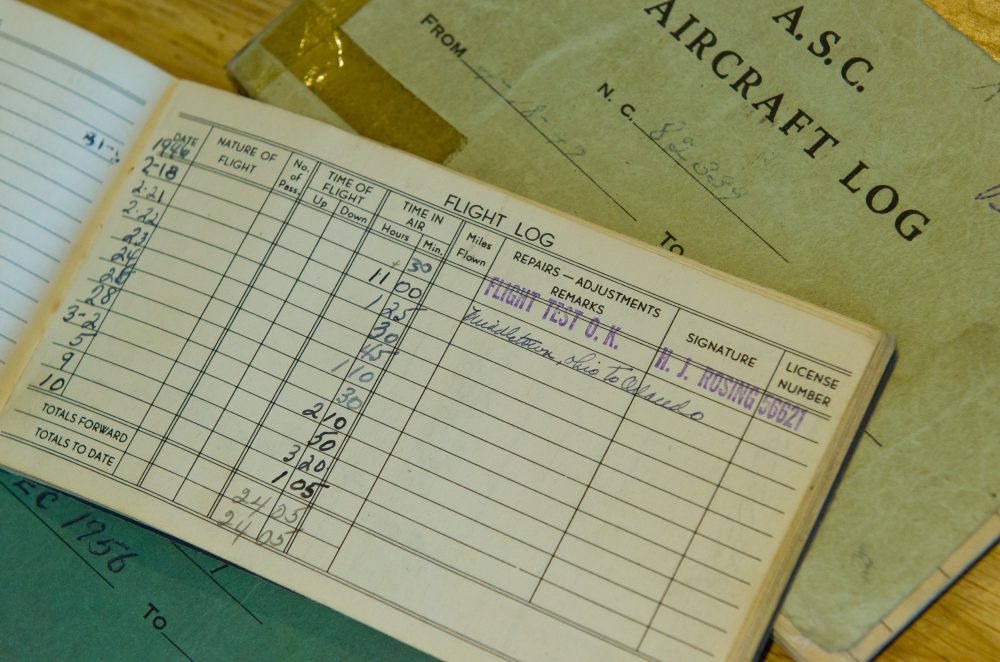 A.S.C.
AIRCRAFT LOG
FROM
N. C.
To
FLIGHT LOG
DATE NATURE OF FLIGHT No. of Pass. TIME OF FLIGHT Up Down TIME IN AIR Hours Min. Miles Flown REPAIRS — ADJUSTMENTS REMARKS SIGNATURE LICENSE NUMBER
1946
2-18 30 FLIGHT TEST O.K. H. J. ROSING 56621
2-21 11 00 Middletown, Ohio to Orlando
2-22 1 25
23 30
24 45
1 10
28 30
3-2 2 10
5 50
9 3 20
10 1 05
TOTALS FORWARD 24 05
TOTALS TO DATE 24 05
1956
To